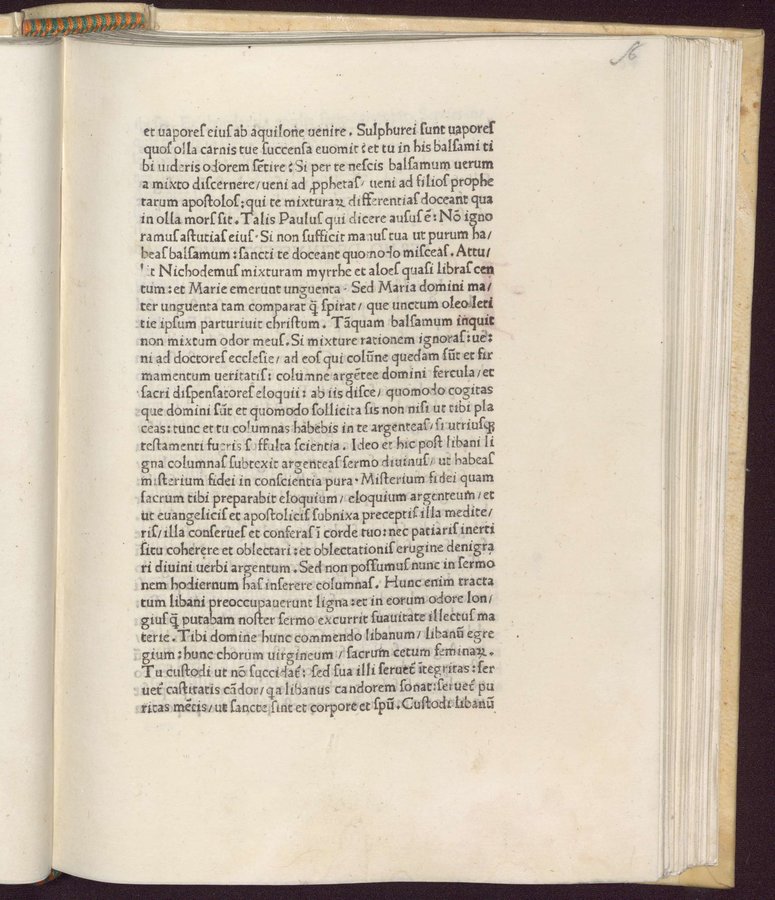 et uaporeſ eiuſ ab aquilone uenire. Sulphurei ſunt uaporeſ
quoſ olla carnis tue ſuccenſa euomit: et tu in his balſami ti
bi uideris odorem ſẽtire: Si per te neſcis balſamum uerum
a mixto diſcernere/ ueni ad ꝓphetaſ/ ueni ad filioſ prophe
tarum apoſtoloſ; qui te mixturaꝝ differentiaſ doceant qua
in olla morſ ſit. Talis Pauluſ qui dicere auſuſ ẽ: Nõ igno
ramuſ aſtutiaſ eiuſ. Si non ſufficit manuſ tua ut purum ha/
beaſ balſamum: ſancti te doceant quomodo miſceaſ. Attu/
it Nichodemuſ mixturam myrrhe et aloeſ quaſi libraſ cen
tum: et Marie emerunt unguenta. Sed Maria domini ma/
ter unguenta tam comparat q̃ ſpirat/ que unctum oleo leti
tie ipſum parturiuit chriſtum. Tãquam balſamum inquit
non mixtum odor meuſ. Si mixture rationem ignoraſ: ue:
ni ad doctoreſ eccleſie/ ad eoſ qui colũne quedam ſũt et fir
mamentum ueritatiſ: columne argẽtee domini fercula/ et
ſacri diſpenſatoreſ eloquii: ab iis diſce/ quomodo cogitas
que domini ſũt et quomodo ſollicita ſis non niſi ut tibi pla
ceas: tunc et tu columnas habebis in te argenteaſ/ ſi utriuſqꝫ
teſtamenti fueris ſuffulta ſcientia. Ideo et hic poſt libani li
gna columnaſ ſubtexit argenteaſ ſermo diuinuſ/ ut habeaſ
miſterium fidei in conſcientia pura. Miſterium fidei quam
ſacrum tibi preparabit eloquium/ eloquium argenteum/ et
ut euangelicis et apoſtolicis ſubnixa preceptiſ illa medite/
riſ/ illa conſerueſ et conferaſ ĩ corde tuo: nec patiariſ inerti
ſitu coherere et oblectari: et oblectationiſ erugine denigra
ri diuini uerbi argentum. Sed non poſſumuſ nunc in ſermo
nem hodiernum haſ inſerere columnaſ. Hunc enim tracta
tum libani preoccupauerunt ligna: et in eorum odore lon/
giuſ q̃ putabam noſter ſermo excurrit ſuauitate illectuſ ma
terie. Tibi domine hunc commendo libanum/ libanũ egre
gium: hunc chorum uirgineum/ ſacrum cetum feminaꝝ.
Tu cuſtodi ut nõ ſuccidat̃: ſed ſua illi ſeruet̃ ĩtegritas: ſer
uet̃ caſtitatis cãdor/ qa libanus candorem ſonat: ſeruet̃ pu
ritas mẽtis/ ut ſancte ſint et corpore et ſpũ. Cuſtodi libanũ